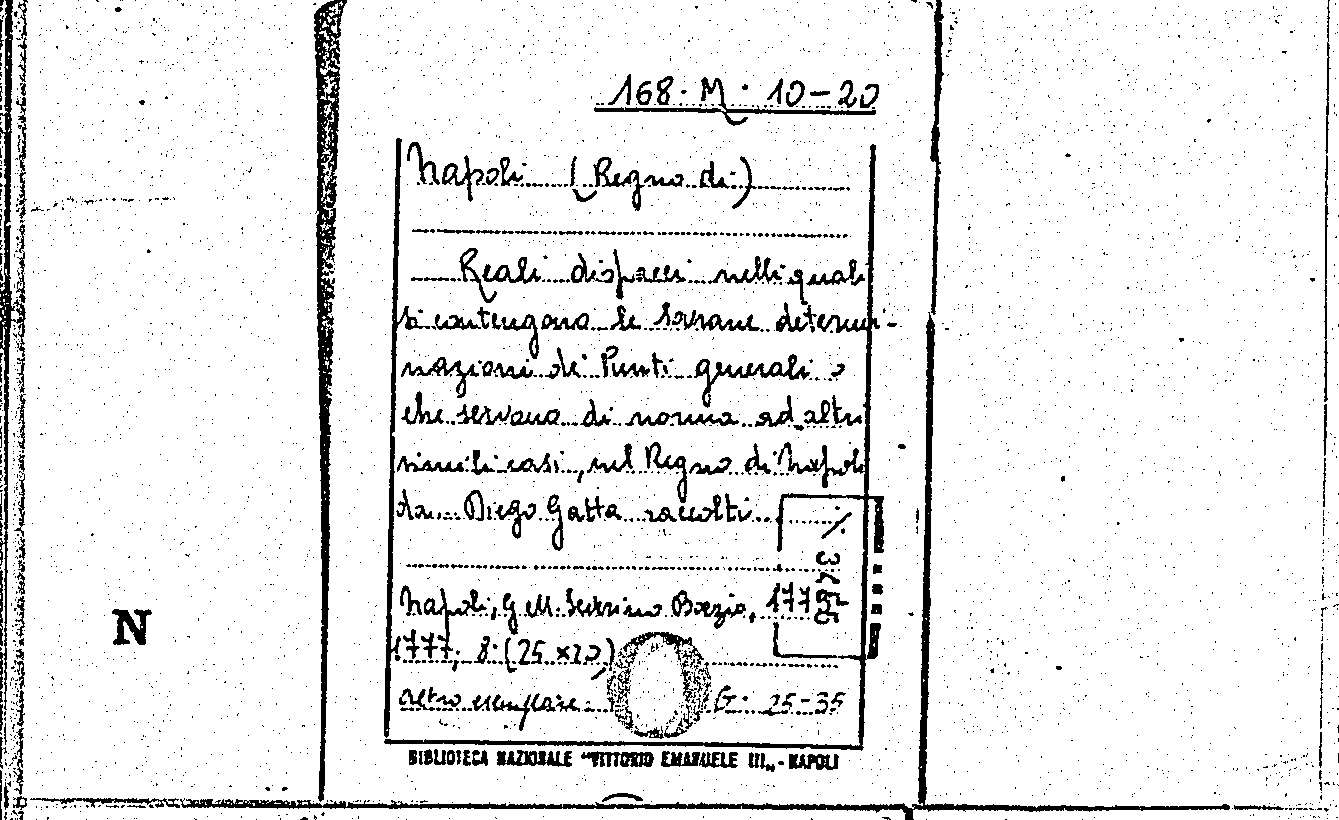 168. M. 10-20
Napoli (Regno di)
Reali dispacci nelli quali
si contengono le Sovrane determi-
nazioni de' Punti generali o
che servano di norma ad altri
simili casi, nel Regno di Napoli
da... Diego Gatta raccolti...
Napoli, G. M. Severino Boezio,
1777, 8° (25 x20)
altro esemplare: G. 25-35
N
BIBLIOTECA NAZIONALE "VITTORIO EMANUELE III„ - NAPOLI